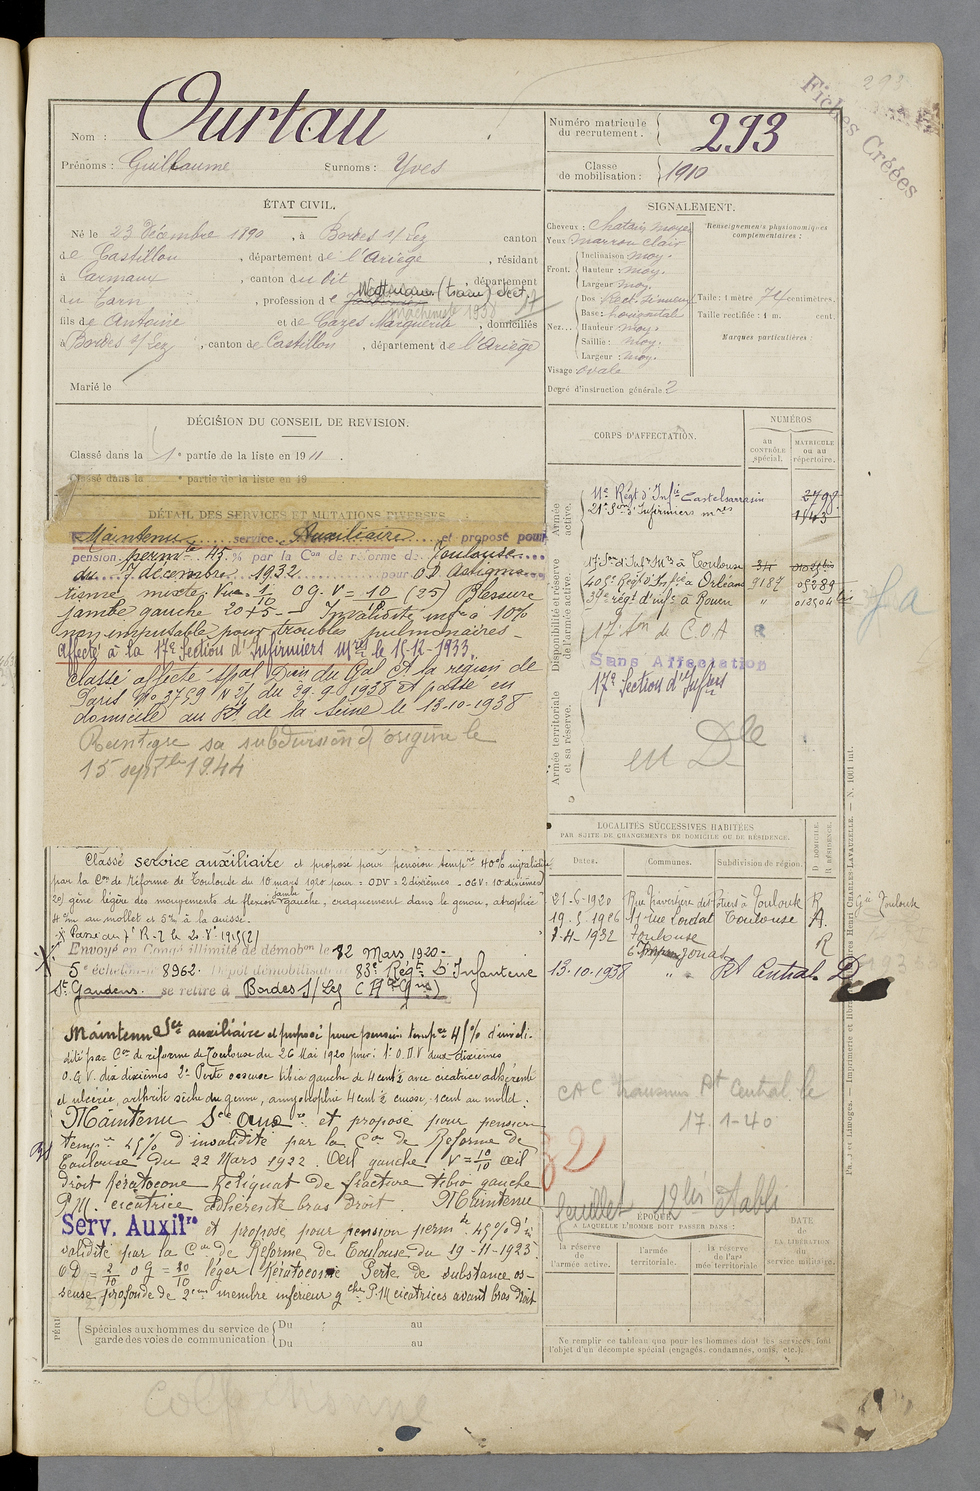 293
Fiches Créées
Nom : Ourtau
Prénoms : Guillaume Surnoms : Yves
Numéro matricule du recrutement : 293
Classe de mobilisation : 1910
ÉTAT CIVIL.
Né le 23 Décembre 1890, à Bordes s/Lez canton
de Castillon, département de l'Ariège, résidant
à Carmaux, canton du dit, département
du Tarn, profession de
machiniste 1938
fils de Antoine et de Cazes Marguerite, domiciliés
à Bordes s/Lez, canton de Castillon, département de l'Ariège
Marié le
SIGNALEMENT.
Cheveux : Chatain moyen
Yeux marron clair
Front. Inclinaison moy.
Hauteur : moy.
Largeur moy.
Nez... Dos Rect. sinueux
Base : horizontale
Hauteur moy.
Saillie : moy.
Largeur : moy.
Visage ovale
Renseignements physionomiques complémentaires :
Taille : 1 mètre 74 centimètres.
Taille rectifiée : 1 m. cent.
Marques particulières :
Degré d'instruction générale 2
DÉCISION DU CONSEIL DE REVISION.
Classé dans la 1e partie de la liste en 1911.
Classé dans la e partie de la liste en 19
DÉTAIL DES SERVICES ET MUTATIONS DIVERSES
Maintenu service Auxiliaire et proposé pour
pension permte 45 % par la Con de réforme de Toulouse
du 7 décembre 1932 pour OD Astigma-
tisme mixte. V = 1/10 OG. V = 10/10 (25) Blessure
jambe gauche 20+5 - Invalidité infre à 10%
non imputable pour troubles pulmonaires -
Affecté à la 17e Section d'Infirmiers Mres le 15-11-1933.
Classé affecté spal Dion du Gal Ct la région de
Paris No 2759 du 29.9.1938 et passé en
domicile au Rt de la Seine le 13-10-1938
Réintègre sa subdivision d'origine le
15 septbre 1944
Classé service auxiliaire et proposé pour pension tempre 40% invalidité
par la Con de réforme de Toulouse du 10 mars 1920 pour : ODV = 2 dixièmes - OGV : 10 dixièmes
2o) gêne légère des mouvements de flexion jambe gauche, craquement dans le genou, atrophie
4 c/m au mollet et 5 c/m à la cuisse.
Envoyé en Congé illimité de démobon le 12 Mars 1920 -
5e échelon no 8962. Dépôt démobilisateur 83e Régt d'Infanterie
St Gaudens. se retire à Bordes s/Lez (Hte Gne)
Maintenu Sce auxiliaire et proposé pour pension tempre 45% d'invali-
dité par Con de réforme de Toulouse du 26 Mai 1920 pour : 1o O.D.V deux dixièmes
O.G.V. dix dixièmes 2o Perte osseuse tibia gauche de 4 cent 1/2 avec cicatrice adhérente
et ulcérée, arthrite sèche du genou, amyotrophie 4 cent 1/2 cuisse, 1 cent au mollet.
Maintenu Sce Auxre et proposé pour pension
tempre 45% d'insalidité par la Con de Réforme de
Toulouse du 22 Mars 1922. Œil gauche V = 10/10 œil
droit Kératocone Reliquat de fracture tibia gauche
P.M. cicatrice adhérente bras droit. Maintenu
Serv. Auxilre et proposé pour pension permte 45% d'in-
validité par la Con de Réforme de Toulouse du 19-11-1923.
OD = 2/10 OG = 10/10 léger Kératocone Perte de substance os-
seuse profonde de membre inférieur gche P.M cicatrices avant bras droit
CORPS D'AFFECTATION.
NUMÉROS
au CONTRÔLE spécial.
MATRICULE ou au répertoire.
Armée active.
11e Régt d'Infie Castelsarrasin 2798
21e Son d'Infirmiers mres 1743
Disponibilité et réserve de l'armée active.
17e Son d'Infrs Mres à Toulouse
40 Régt d'Infie à Orléans 9187 05389
39e régt d'infie à Rouen " 012504 bis
17e Son de C.O.A
Armée territoriale et sa réserve.
Sans Affectation
17e Section d'Infirs
en Dle
LOCALITÉS SUCCESSIVES HABITÉES
PAR SUITE DE CHANGEMENTS DE DOMICILE OU DE RÉSIDENCE.
Dates. Communes. Subdivision de région. D DOMICILE. R RÉSIDENCE.
21-6-1920 Rue des Potiers à Toulouse R
Toulouse
7-4-1932 Toulouse R
13-10-1938 " " Rt Central. D
CAC transmis Rt Central le
17.1.40
32
feuillet 12 bis établi
ÉPOQUE
À LAQUELLE L'HOMME DOIT PASSER DANS :
la réserve de l'armée active.
l'armée territoriale.
la réserve de l'armée territoriale
DATE de LA LIBÉRATION du service militaire.
Spéciales aux hommes du service de garde des voies de communication
Du au
Du au
Ne remplir ce tableau que pour les hommes dont les services font l'objet d'un décompte spécial (engagés, condamnés, omis, etc.).
Paris et Limoges. — Imprimerie et librairie militaires Henri CHARLES-LAVAUZELLE. — N. 1001 int.